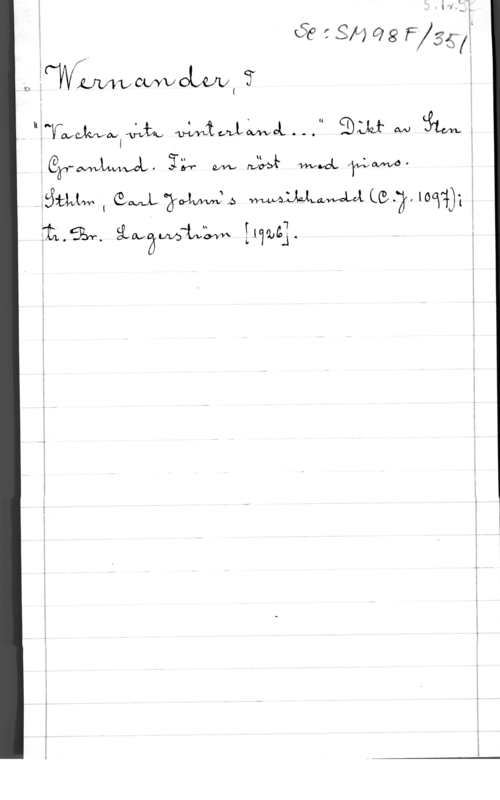 Se: SM 98 F/351
Wernander, T
"Vackra, vita vinterland..." Dikt av Sten
Granlund. För en röst med piano.
Sthlm, Carl Johnn's musikhandel (C.J. 1097);
tr. Br. Lagerström [1926].